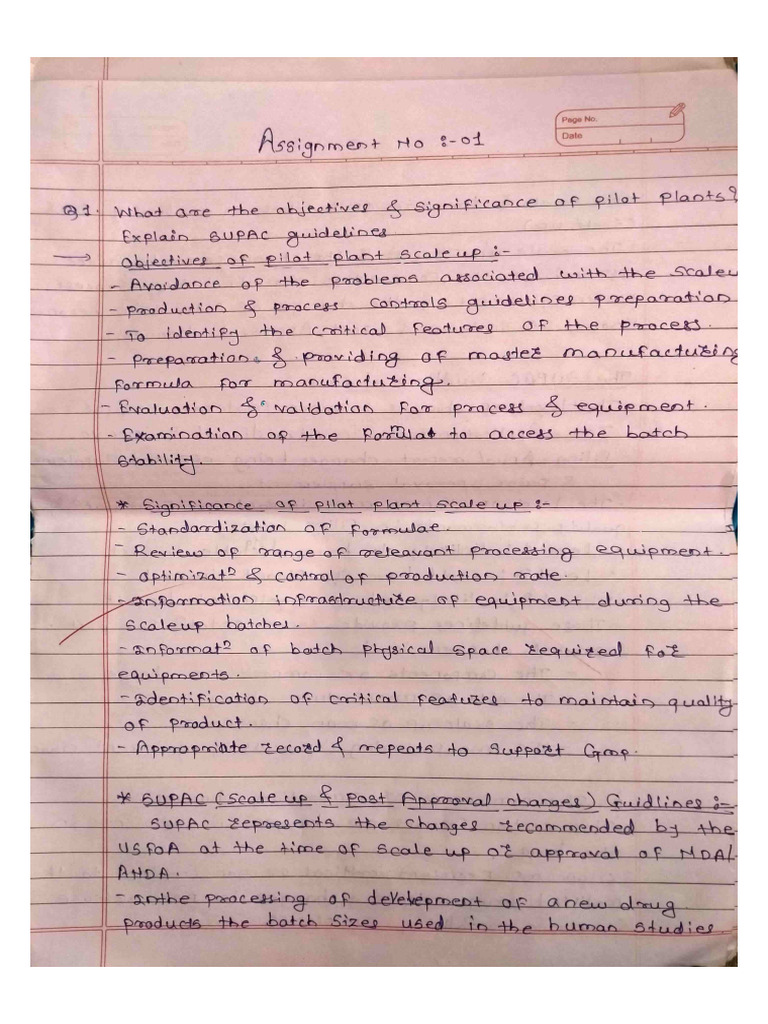 Page No.
Date
Assignment No :-01
Q1. What are the objectives & significance of pilot plants?
Explain SUPAC guidelines
→ objectives of pilot plant scale up :-
- Avoidance of the problems associated with the scaleu
- production & process controls guidelines preparation
- To identify the critical features of the process.
- preparation & providing of master manufacturing
formula for manufacturing.
- Evaluation & validation for process & equipment.
- Examination of the formulatn to access the batch
stability.
* Significance of pilot plant scale up :-
- Standardization of formulae.
- Review of range of releavant processing equipment.
- optimizatn & control of production rate.
- Information infrastructure of equipment during the
scaleup batches.
- Informatn of batch physical space required for
equipments.
- Identification of critical features to maintain quality
of product.
- Appropriate record & repeats to support Gmp.
* SUPAC (scale up & post Approval changes) Guidlines :-
SUPAC represents the changes recommended by the
USFDA at the time of scale up or approval of NDA/
ANDA.
- Inthe processing of development of anew drug
products the batch sizes used in the human studies